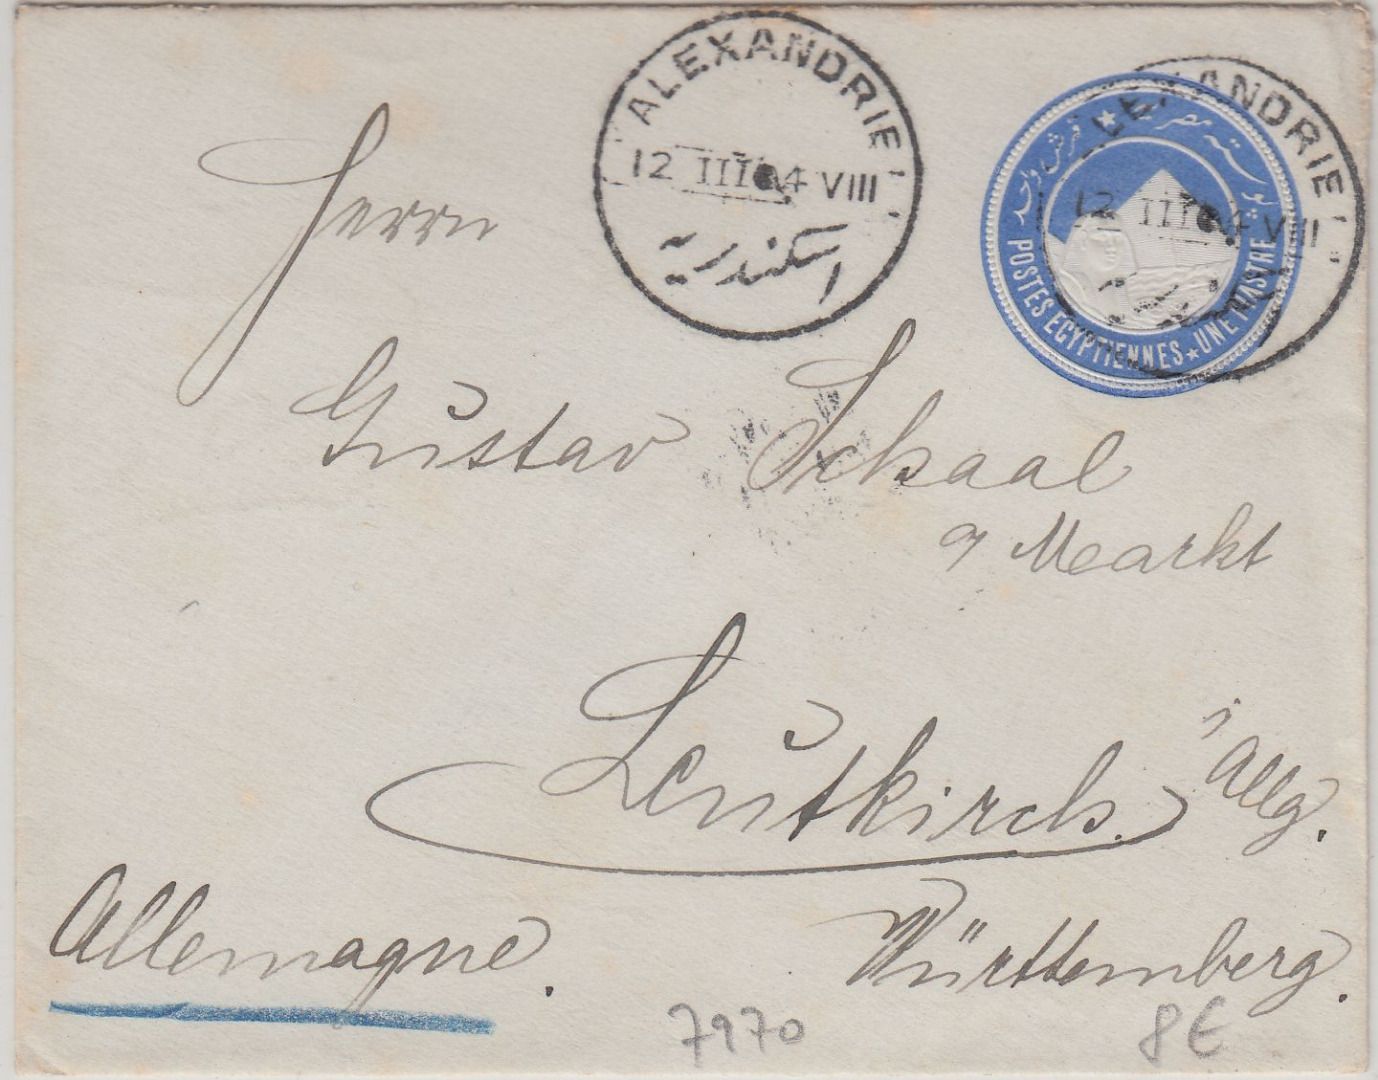 ALEXANDRIE
12 III 04 VIII
اسكندرية
ALEXANDRIE
12 III 04 VIII
بوسته مصرية
قرش واحد
POSTES EGYPTIENNES ★ UNE PIASTRE
Herrn
Gustav Schaal
a/ Markt
Leutkirch.
i/Allg.
Allemagne.
Württemberg.
7970
8€